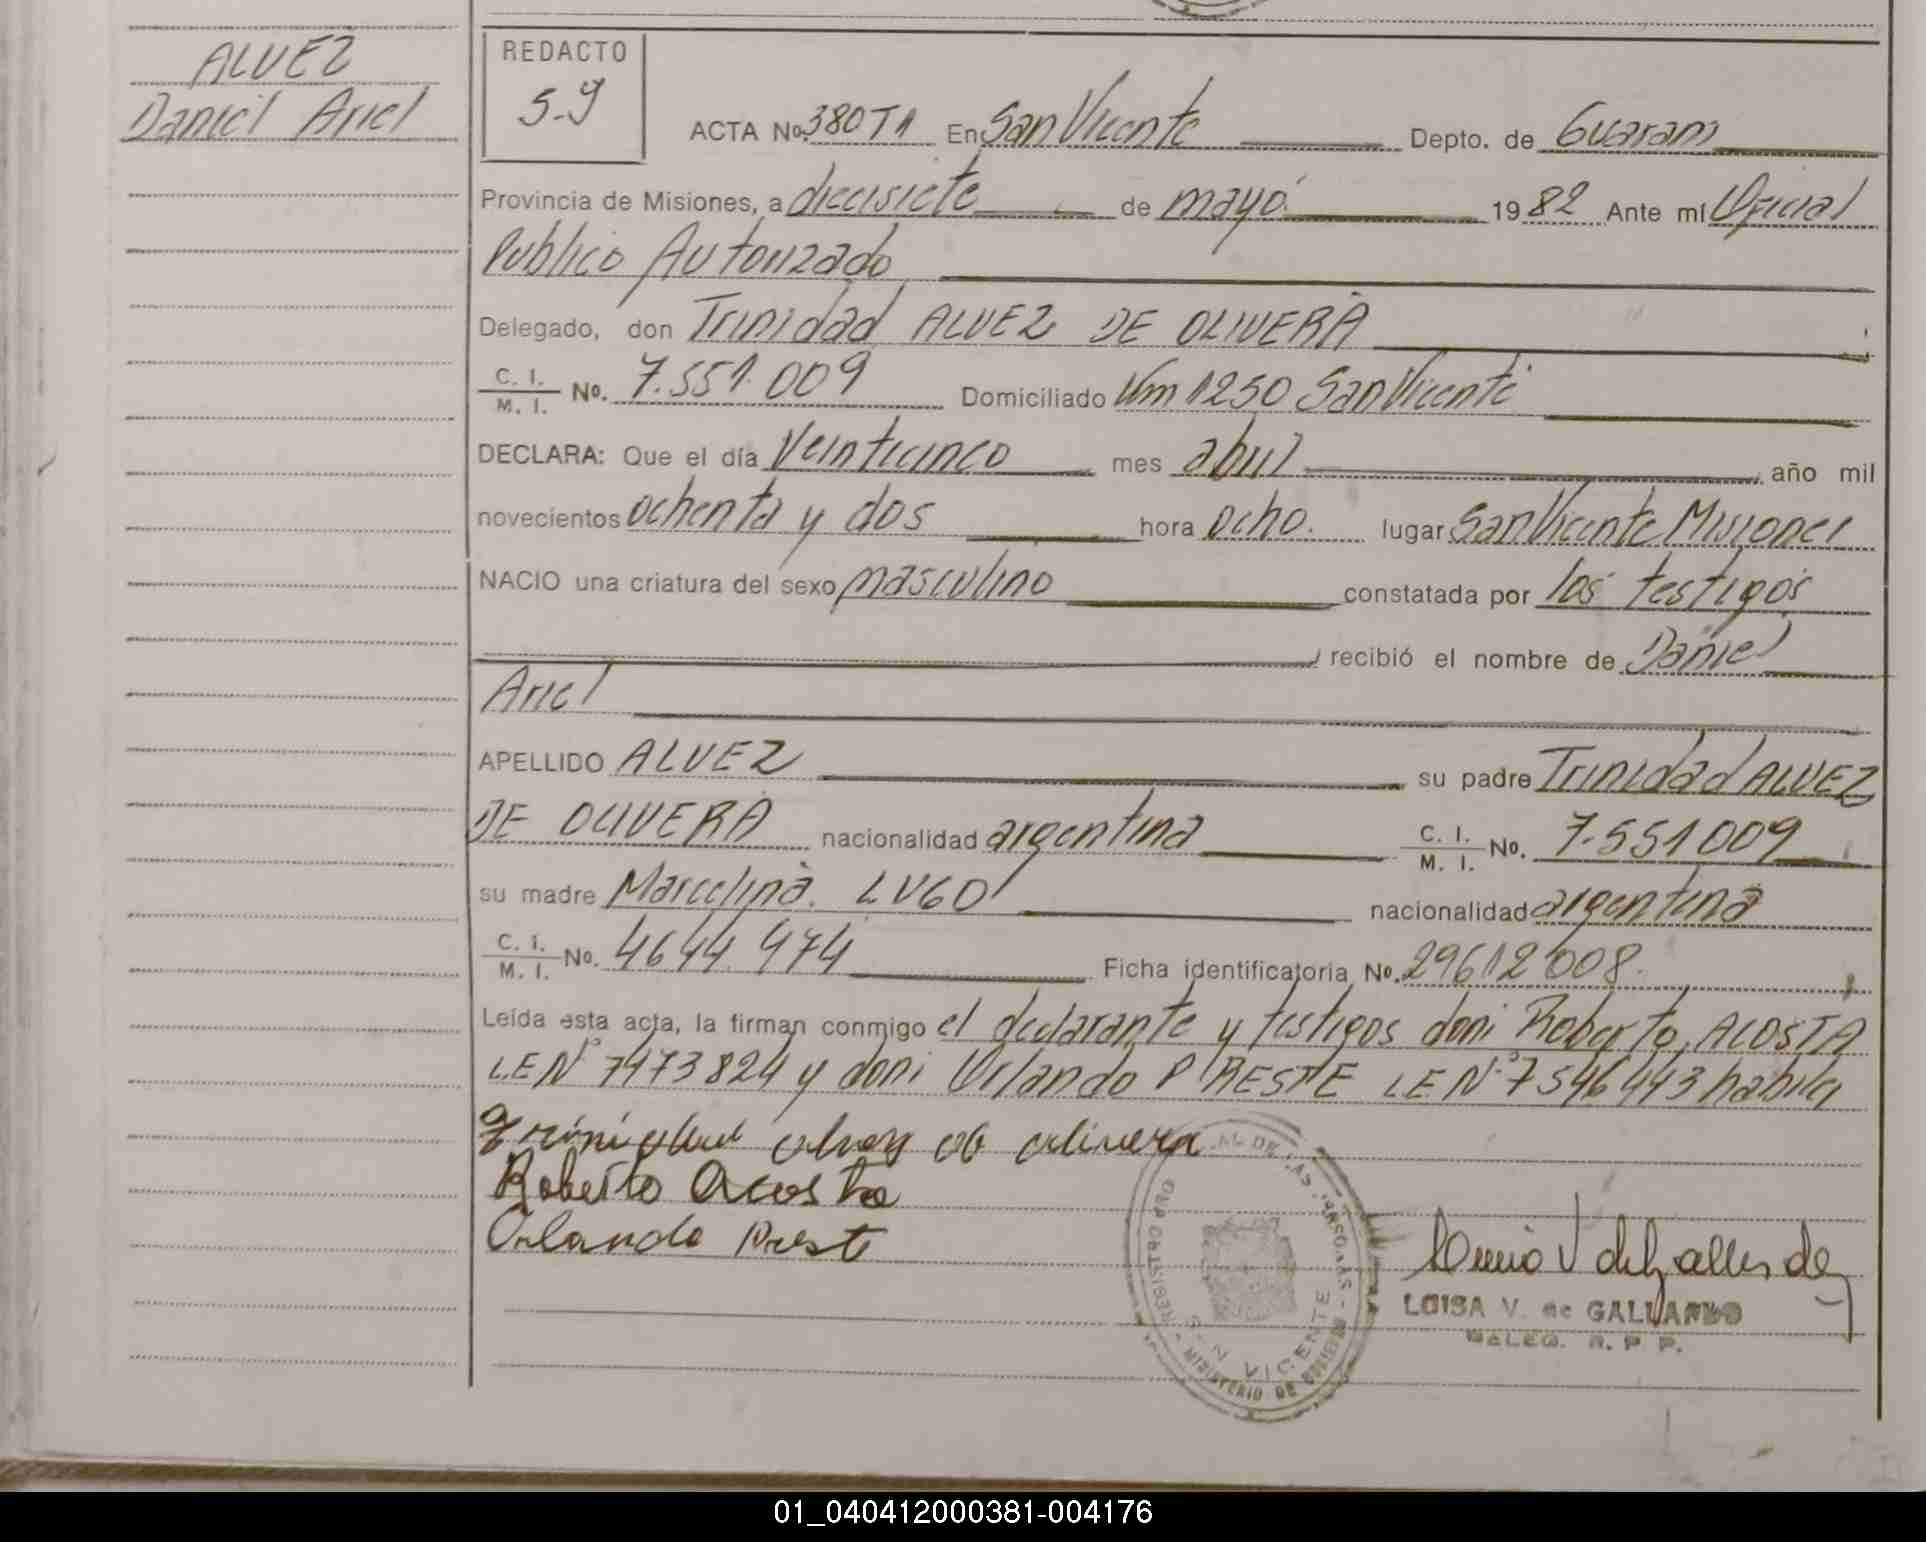 ALVEZ
Daniel Ariel
REDACTO
S-9
ACTA No. 380T1 En San Vicente Depto. de Guarani
Provincia de Misiones, a diecisiete de mayo 1982 Ante mí Oficial
Publico Autorizado
Delegado, don Trinidad ALVEZ DE OLIVERA
C. I. / M. I. No. 7.551.009 Domiciliado Km 1250 San Vicente
DECLARA: Que el día Veinticinco mes abril año mil
novecientos ochenta y dos hora ocho. lugar San Vicente Misiones
NACIO una criatura del sexo masculino constatada por los testigos
recibió el nombre de Daniel
Ariel
APELLIDO ALVEZ su padre Trinidad ALVEZ
DE OLIVERA nacionalidad argentina C. I. / M. I. No. 7.551009
su madre Marcelina. LUGO nacionalidad argentina
C. I. / M. I. No. 4644.974 Ficha identificatoria No. 29612008.
Leída esta acta, la firman conmigo el declarante y testigos doni Roberto ACOSTA
LE Nº 7473824 y doni Orlando PRESTE LE Nº 7546443 habiles
Trinidad alvez de olivera
Roberto Acosta
Orlando Prest
REGISTRO PROVINCIAL DE LAS PERSONAS - MINISTERIO DE GOBIERNO
SAN VICENTE
LUISA V. de GALLARDO
DELEG. R. P. P.
01_040412000381-004176